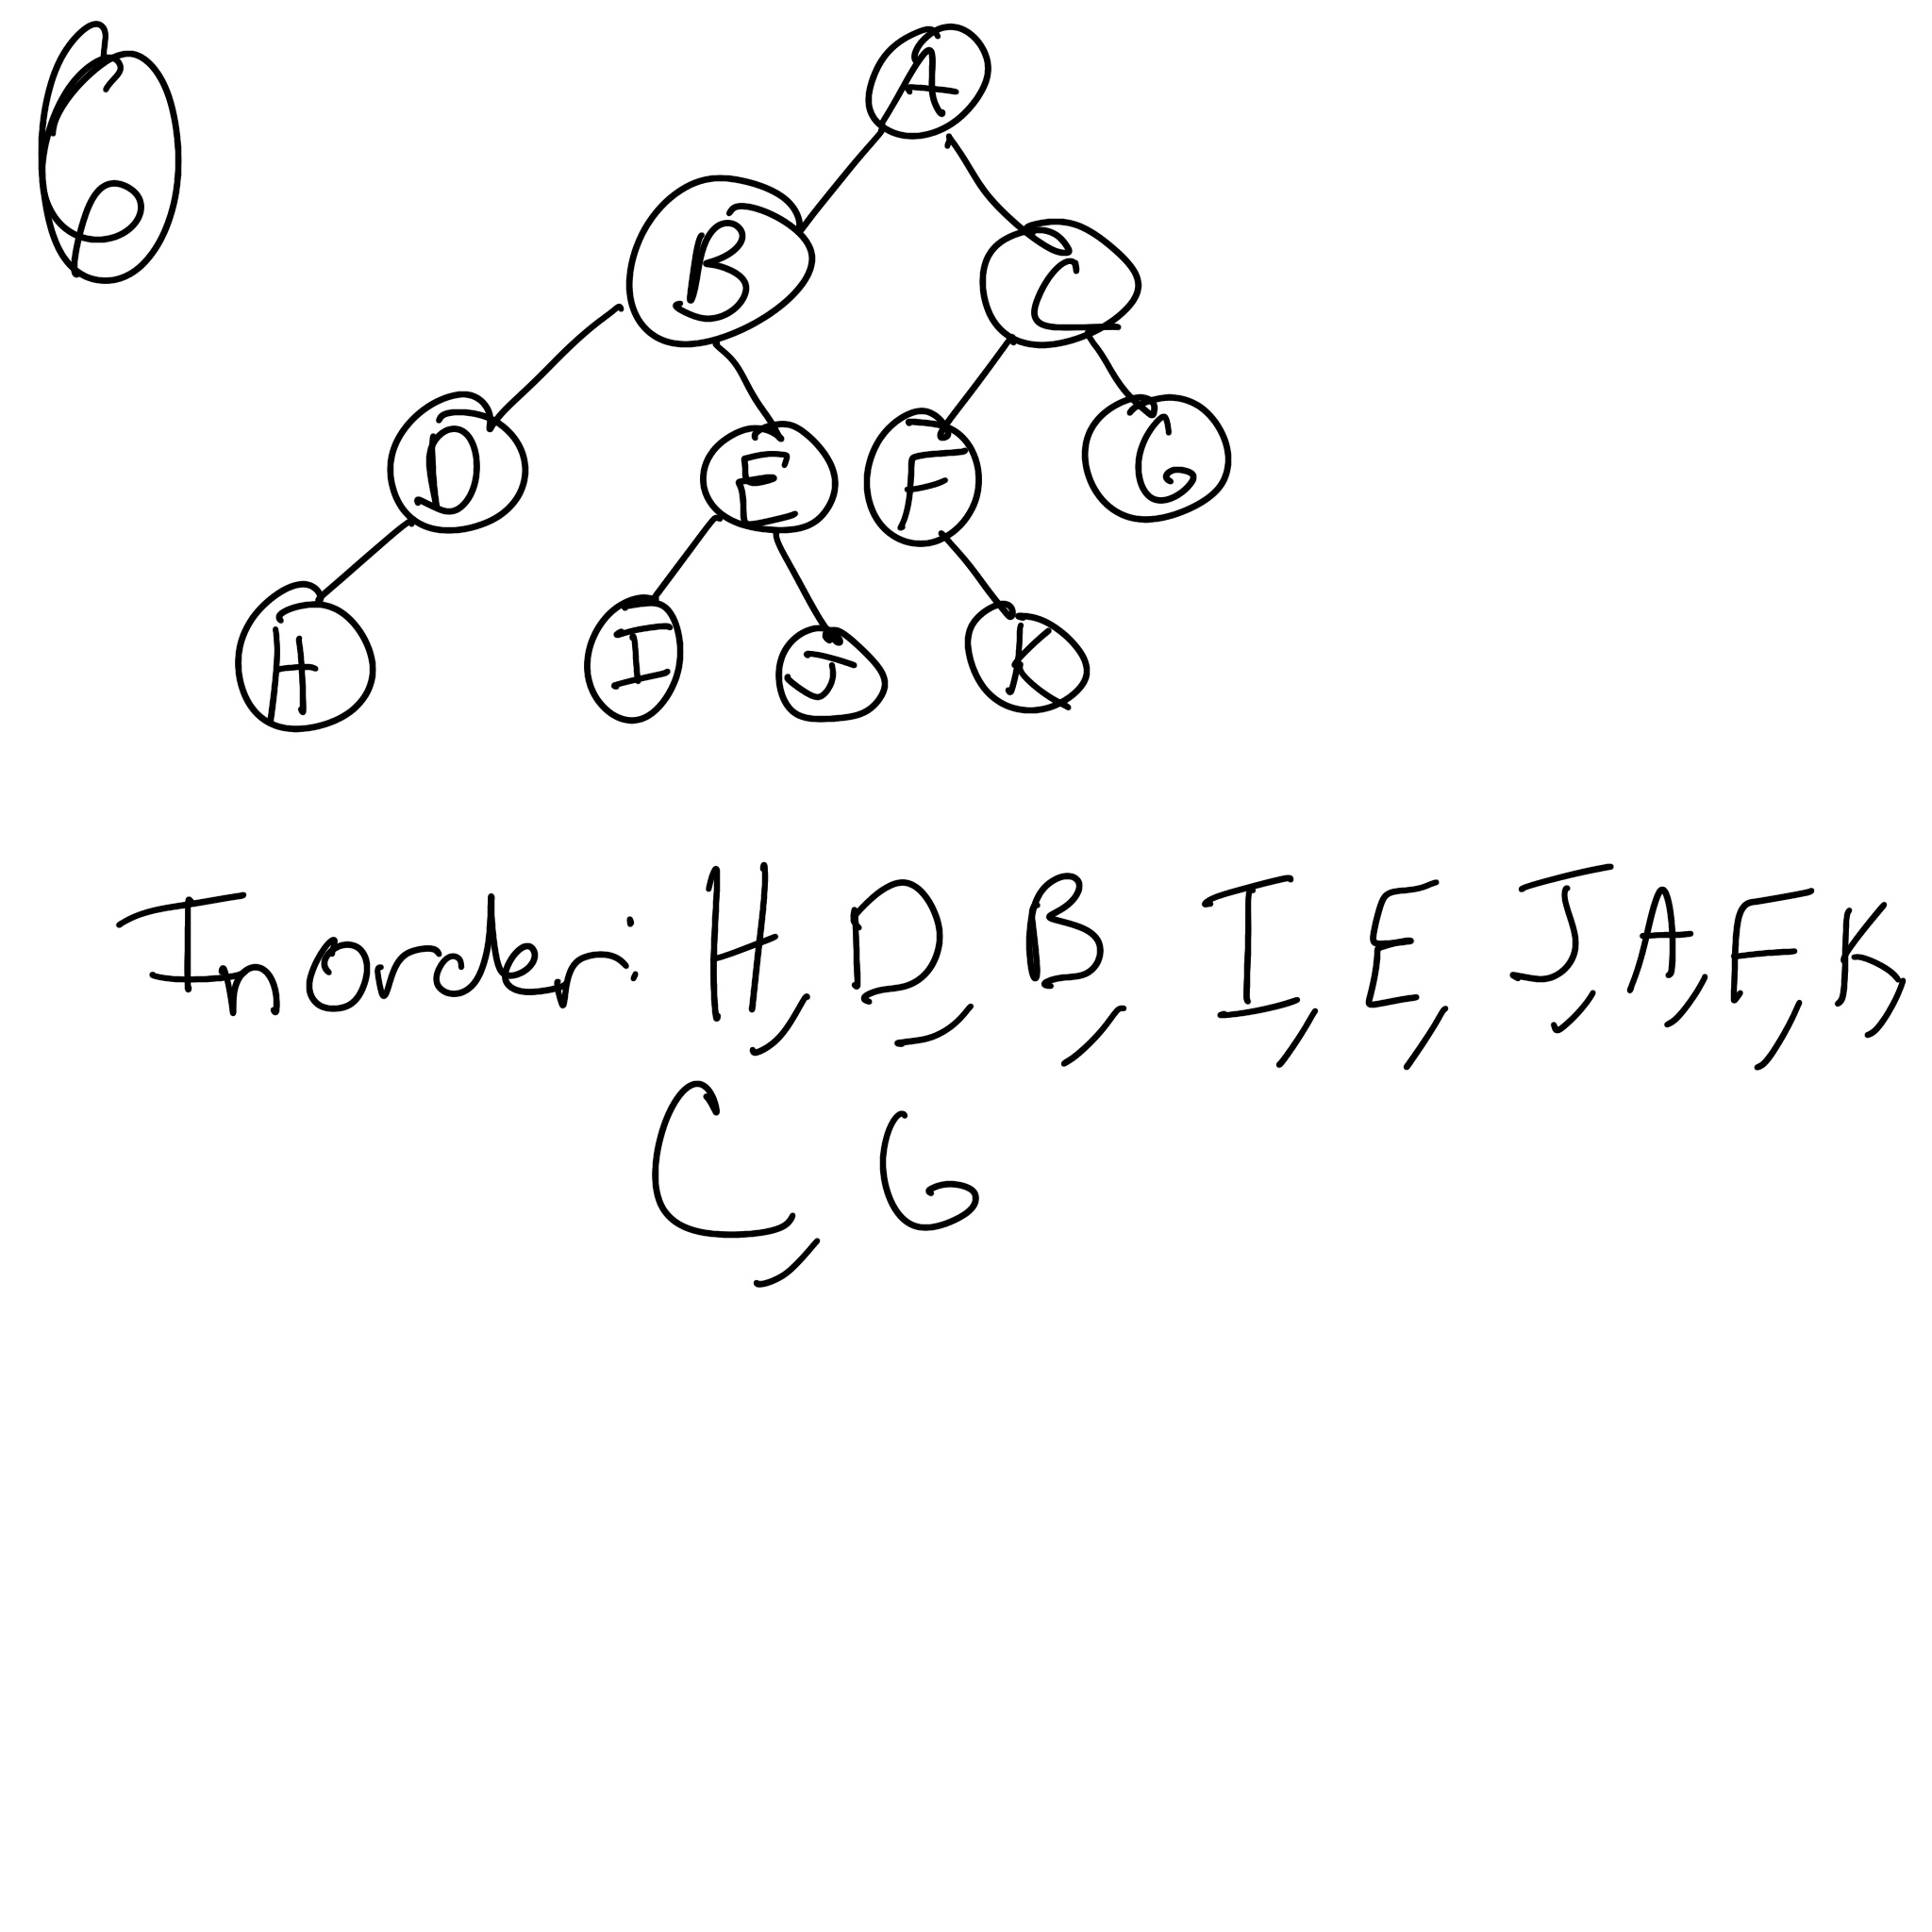 6
A
B C
D E F G
H I J K
Inorder: H, D, B, I, E, J, A, F, K,
C, G